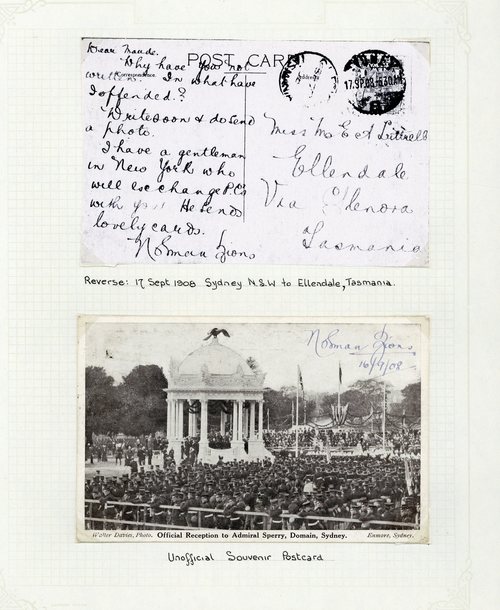 Dear Maude.
POST CARD
Why have you not
written. In what have
Correspondence.
Address
I offended?
17.SP.08 5.30AM
Write soon & do send
a photo.
I have a gentleman
in New York who
will exchange P.Cs
with you. He sends
lovely cards.
Norman Lyons
Miss M E A
Ellendale
Via Glenora
Tasmania
Reverse: 17 Sept 1908 Sydney N.S.W to Ellendale, Tasmania.
Norman Lyons
16/9/08
Walter Davies, Photo. Official Reception to Admiral Sperry, Domain, Sydney. Enmore, Sydney.
Unofficial Souvenir Postcard